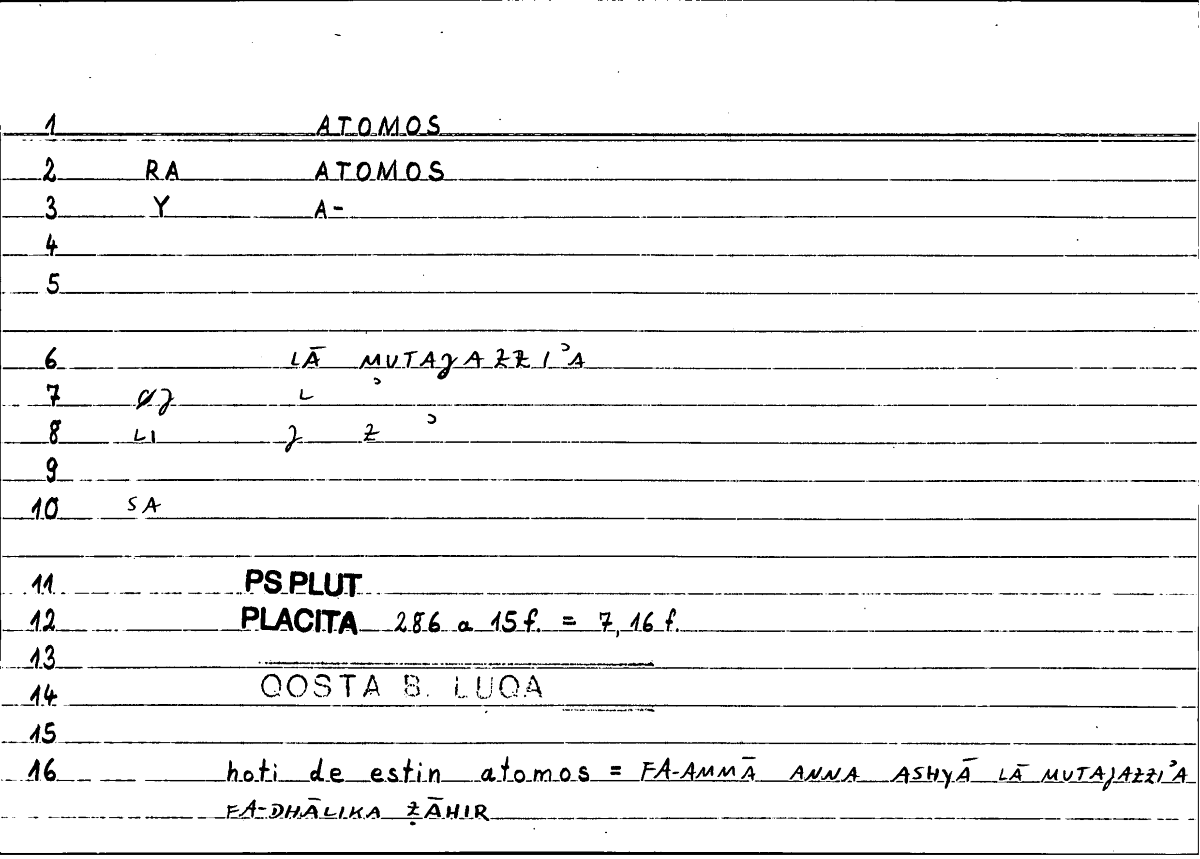 1 ATOMOS
2 RA ATOMOS
3 Y A-
4
5
6 LĀ MUTAJAZZIʾA
7 ØJ L ʾ
8 LI J Z ʾ
9
10 SA
11 PS PLUT
12 PLACITA 286 a 15 f. = 7, 16 f.
13
14 QOSTA B. LUQA
15
16 hoti de estin atomos = FA-AMMĀ ANNA ASHYĀ LĀ MUTAJAZZIʾA
FA-DHĀLIKA ẒĀHIR